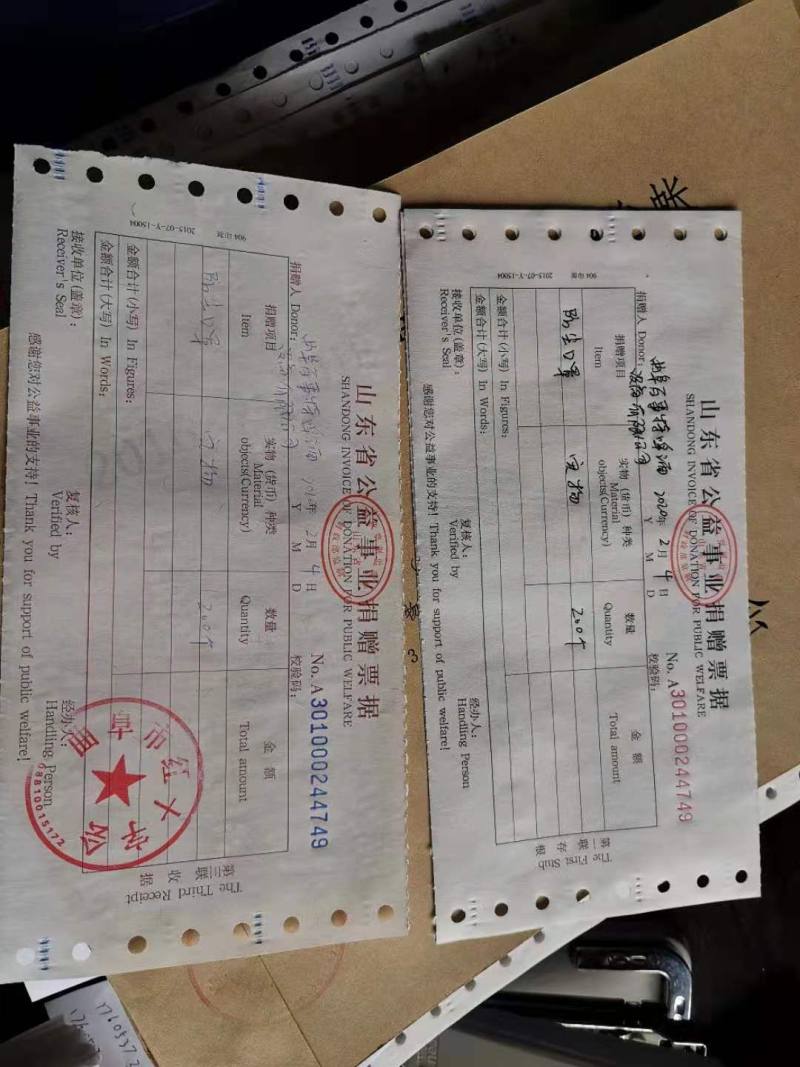 山东省公益事业捐赠票据
SHANDONG INVOICE OF DONATION FOR PUBLIC WELFARE
捐赠人 Donor: 曲阜百事特啤酒设备有限公司 2020年 2月 4日
Y M D
No. A301000244749
校验码:
捐赠项目 实物(货币)种类 数量 金额
Item Material objects(Currency) Quantity Total amount
防尘口罩 实物 200个
金额合计(小写) In Figures:
金额合计(大写) In Words:
接收单位(盖章): 复核人: 经办人:
Receiver's Seal Verified by Handling Person
感谢您对公益事业的支持! Thank you for support of public welfare!
第一联 存根
The First Stub
904 印制 2015-07-Y-15004
山东省公益事业捐赠票据
SHANDONG INVOICE OF DONATION FOR PUBLIC WELFARE
捐赠人 Donor: 曲阜百事特啤酒设备有限公司 2020年 2月 4日
Y M D
No. A301000244749
校验码:
捐赠项目 实物(货币)种类 数量 金额
Item Material objects(Currency) Quantity Total amount
防尘口罩 实物 200个
金额合计(小写) In Figures:
金额合计(大写) In Words:
接收单位(盖章): 复核人: 经办人:
Receiver's Seal Verified by Handling Person
感谢您对公益事业的支持! Thank you for support of public welfare!
第三联 收据
The Third Receipt
904 印制 2015-07-Y-15004
曲阜市红十字会
08810015172